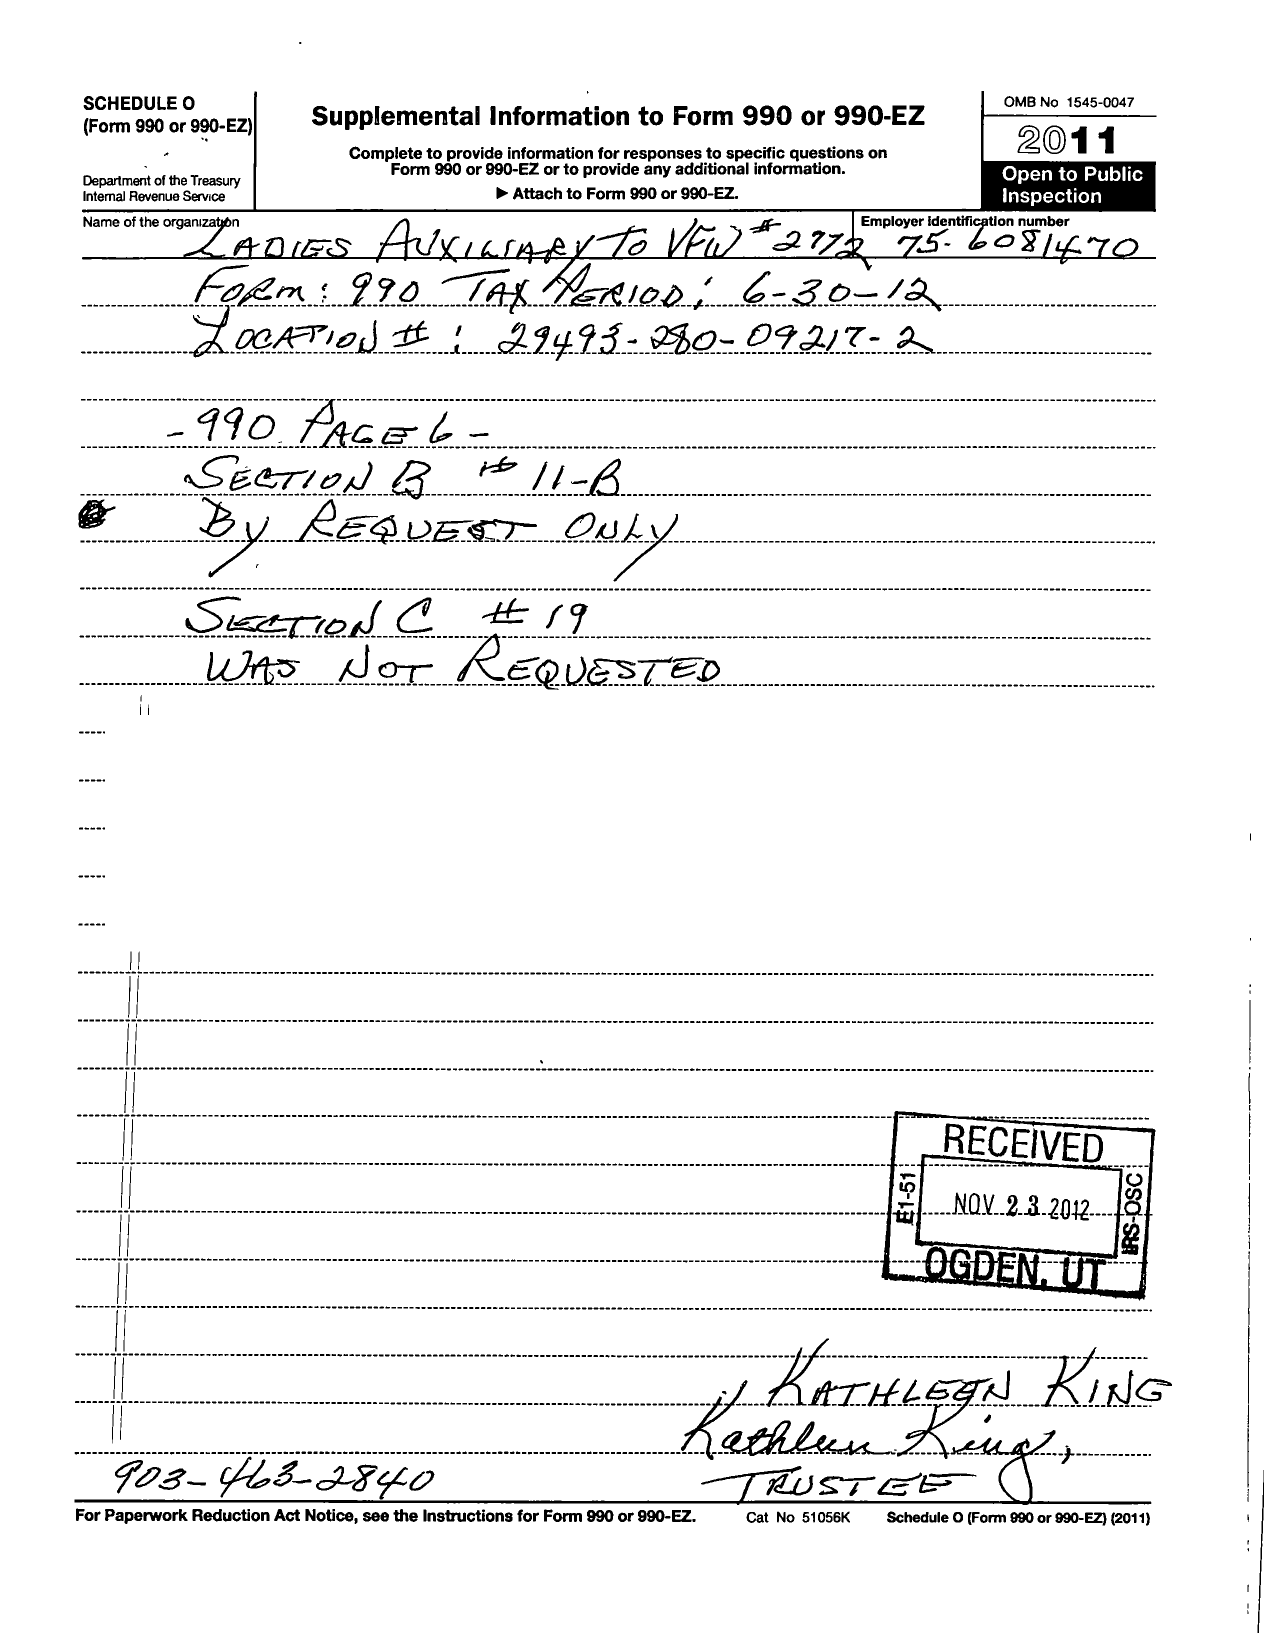 SCHEDULE O
(Form 990 or 990-EZ)
Department of the Treasury
Internal Revenue Service
Supplemental Information to Form 990 or 990-EZ
Complete to provide information for responses to specific questions on
Form 990 or 990-EZ or to provide any additional information.
▶ Attach to Form 990 or 990-EZ.
OMB No 1545-0047
2011
Open to Public
Inspection
Name of the organization
LADIES AUXILIARY TO VFW #2772
Employer identification number
75-6081470
FORM: 990 TAX PERIOD: 6-30-12
LOCATION #: 29493-280-09217-2
-990 PAGE 6-
SECTION B # 11-B
BY REQUEST ONLY
SECTION C # 19
WAS NOT REQUESTED
RECEIVED
E1-51
NOV 23 2012
IRS-OSC
OGDEN, UT
KATHLEEN KING
Kathleen King,
903-463-2840
TRUSTEE
For Paperwork Reduction Act Notice, see the Instructions for Form 990 or 990-EZ.
Cat No 51056K
Schedule O (Form 990 or 990-EZ) (2011)